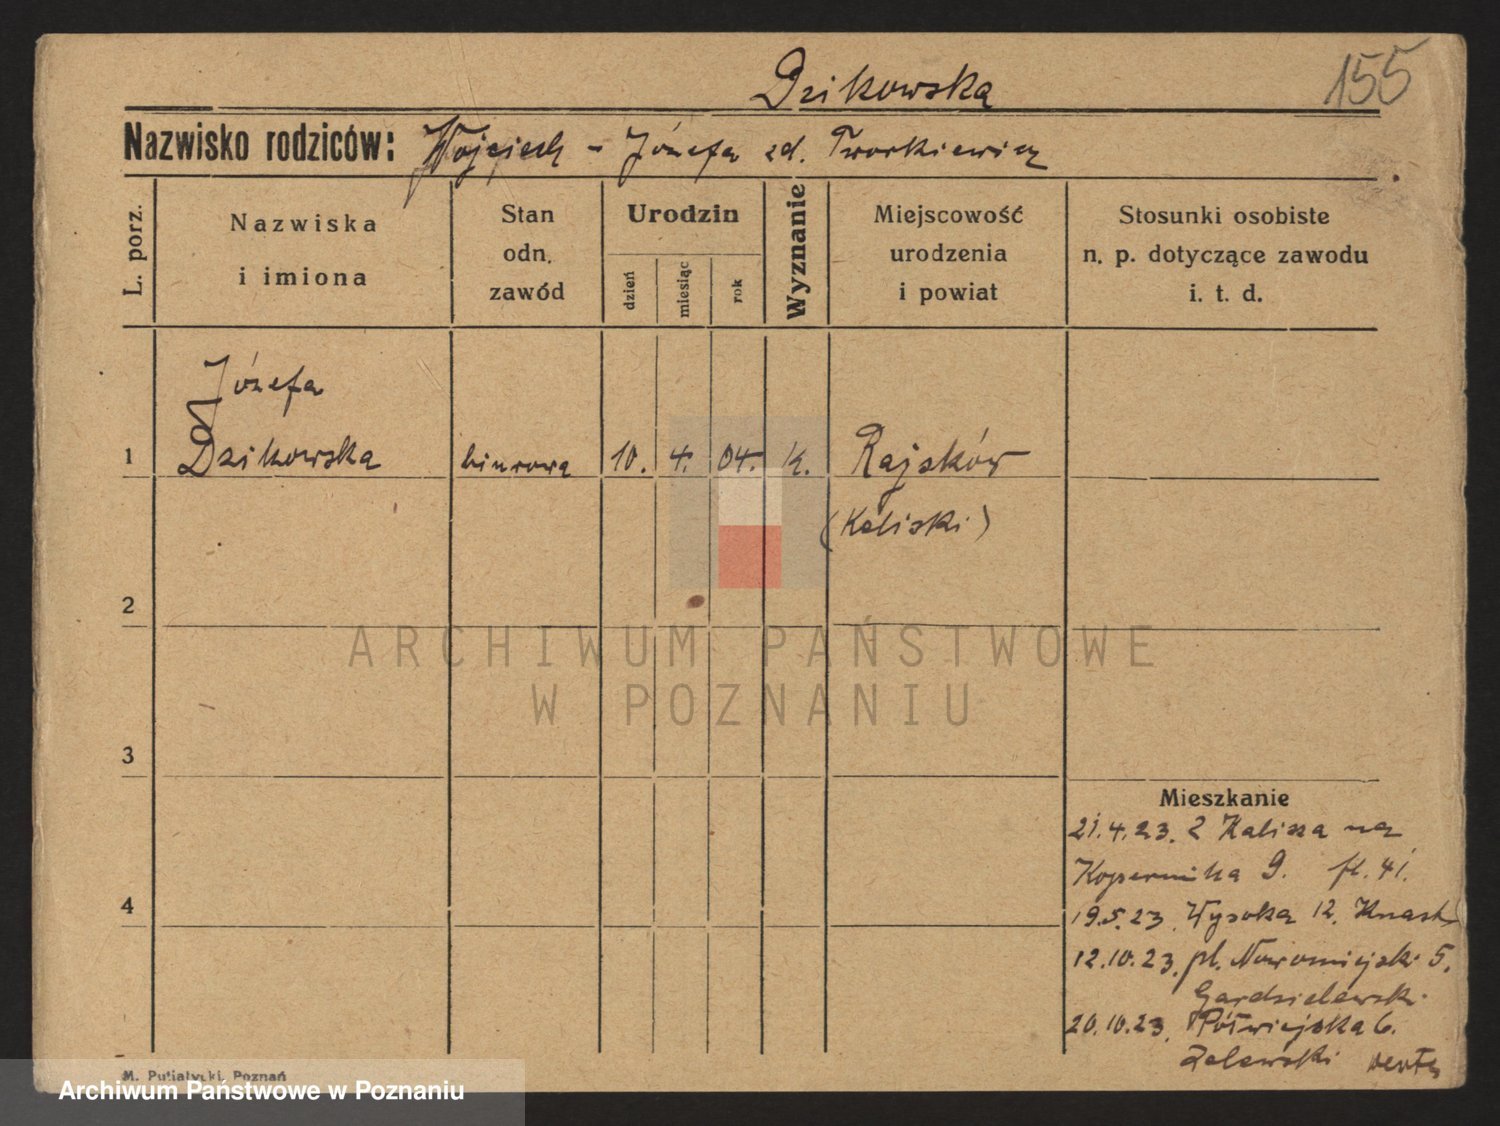 Dzikowska
155
Nazwisko rodziców: Wojciech - Józefa zd. Tworkiewicz
L. porz.
Nazwiska
i imiona
Stan
odn.
zawód
Urodzin
dzień
miesiąc
rok
Wyznanie
Miejscowość
urodzenia
i powiat
Stosunki osobiste
n. p. dotyczące zawodu
i. t. d.
Józefa
1 Dzikowska biurowa 10. 4. 04. k. Rajsków
(Kaliski)
2
ARCHIWUM PAŃSTWOWE
W POZNANIU
3
Mieszkanie
21.4.23. z Kalisza na
Kopernika 9. fl. 41.
4
19.5.23. Wysoka 12. Knast
12.10.23. pl. Nowomiejski 5.
Gardzielewski
20.10.23. Półwiejska 6.
Zalewski verte
M. Putiatycki, Poznań
Archiwum Państwowe w Poznaniu